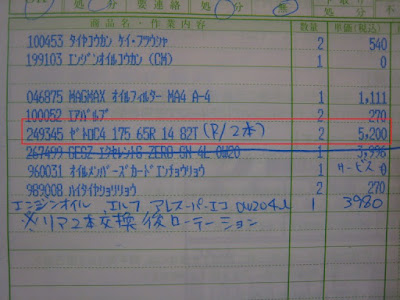 処 分 要 連 絡 処 分 無
商品名・作業内容 数量 単価(税込)
100453 タイヤコウカン ケイ・フツウシャ 2 540
199103 エンジンオイルコウカン (CM) 1 0
046875 MAGMAX オイルフィルター MA4 A-4 1 1,111
100052 エアバルブ 2 270
249345 ゼットOC4 175 65R 14 82T (R/2本) 2 5,200
267499 GEOZ エクセレントS ZERO SN 4L 0W20 1 3,996
960031 オイルメンバーズカードエンチョウリョウ 1 サービス 0
989008 ハイタイヤショリリョウ 2 270
エンジンオイル エルフ アレスーパーエコ 0W20 4L 1 3980
※リア2本交換後ローテーション